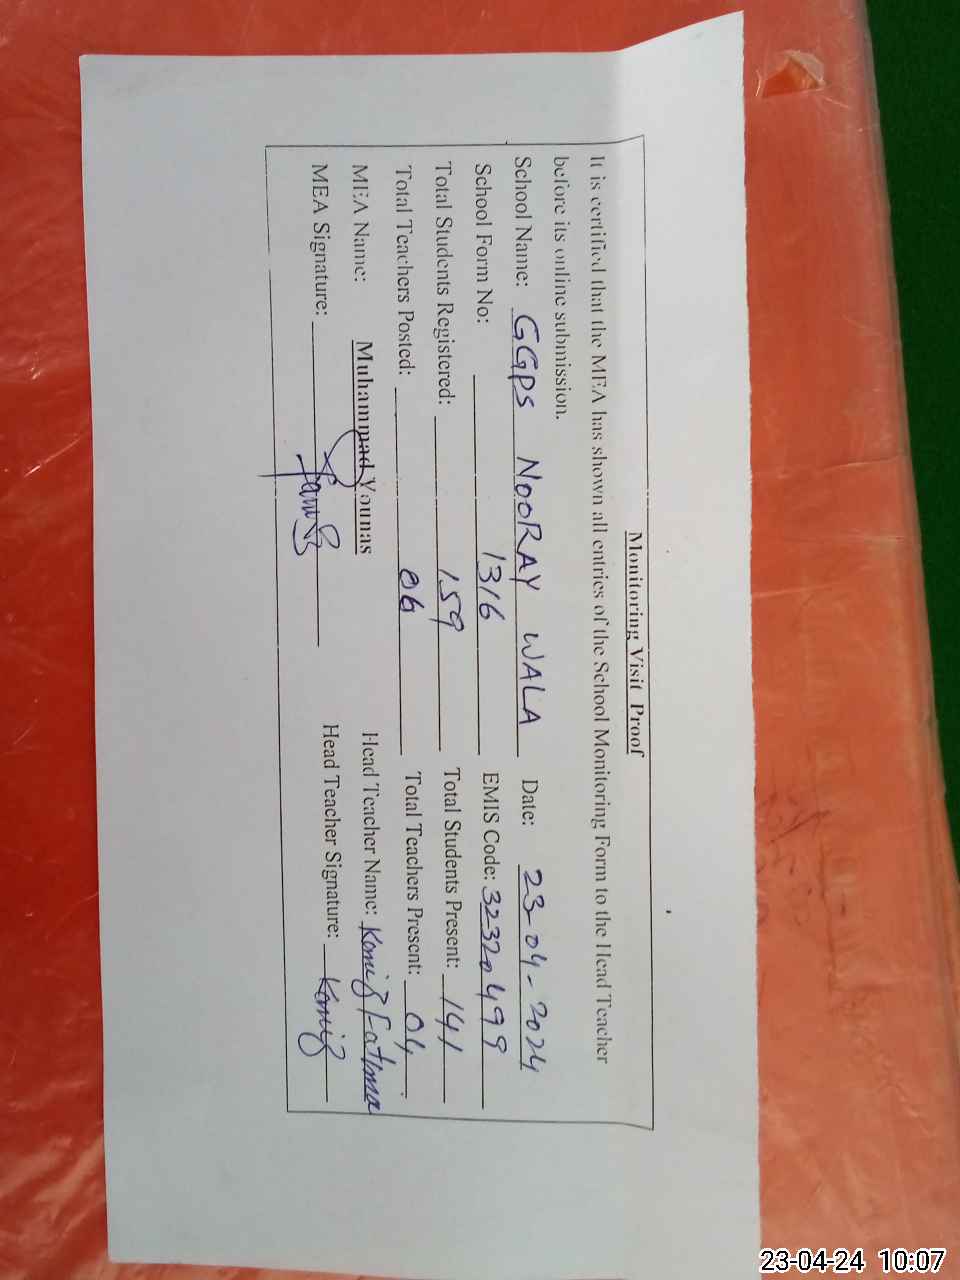 Monitoring Visit Proof
It is certified that the MEA has shown all entries of the School Monitoring Form to the Head Teacher
before its online submission.
School Name: GGPS NOORAY WALA Date: 23-04-2024
School Form No: 1316 EMIS Code: 32320499
Total Students Registered: 159 Total Students Present: 141
Total Teachers Posted: 06 Total Teachers Present: 04
MEA Name: Muhammad Younas Head Teacher Name: Fatima
MEA Signature: Head Teacher Signature:
23-04-24 10:07